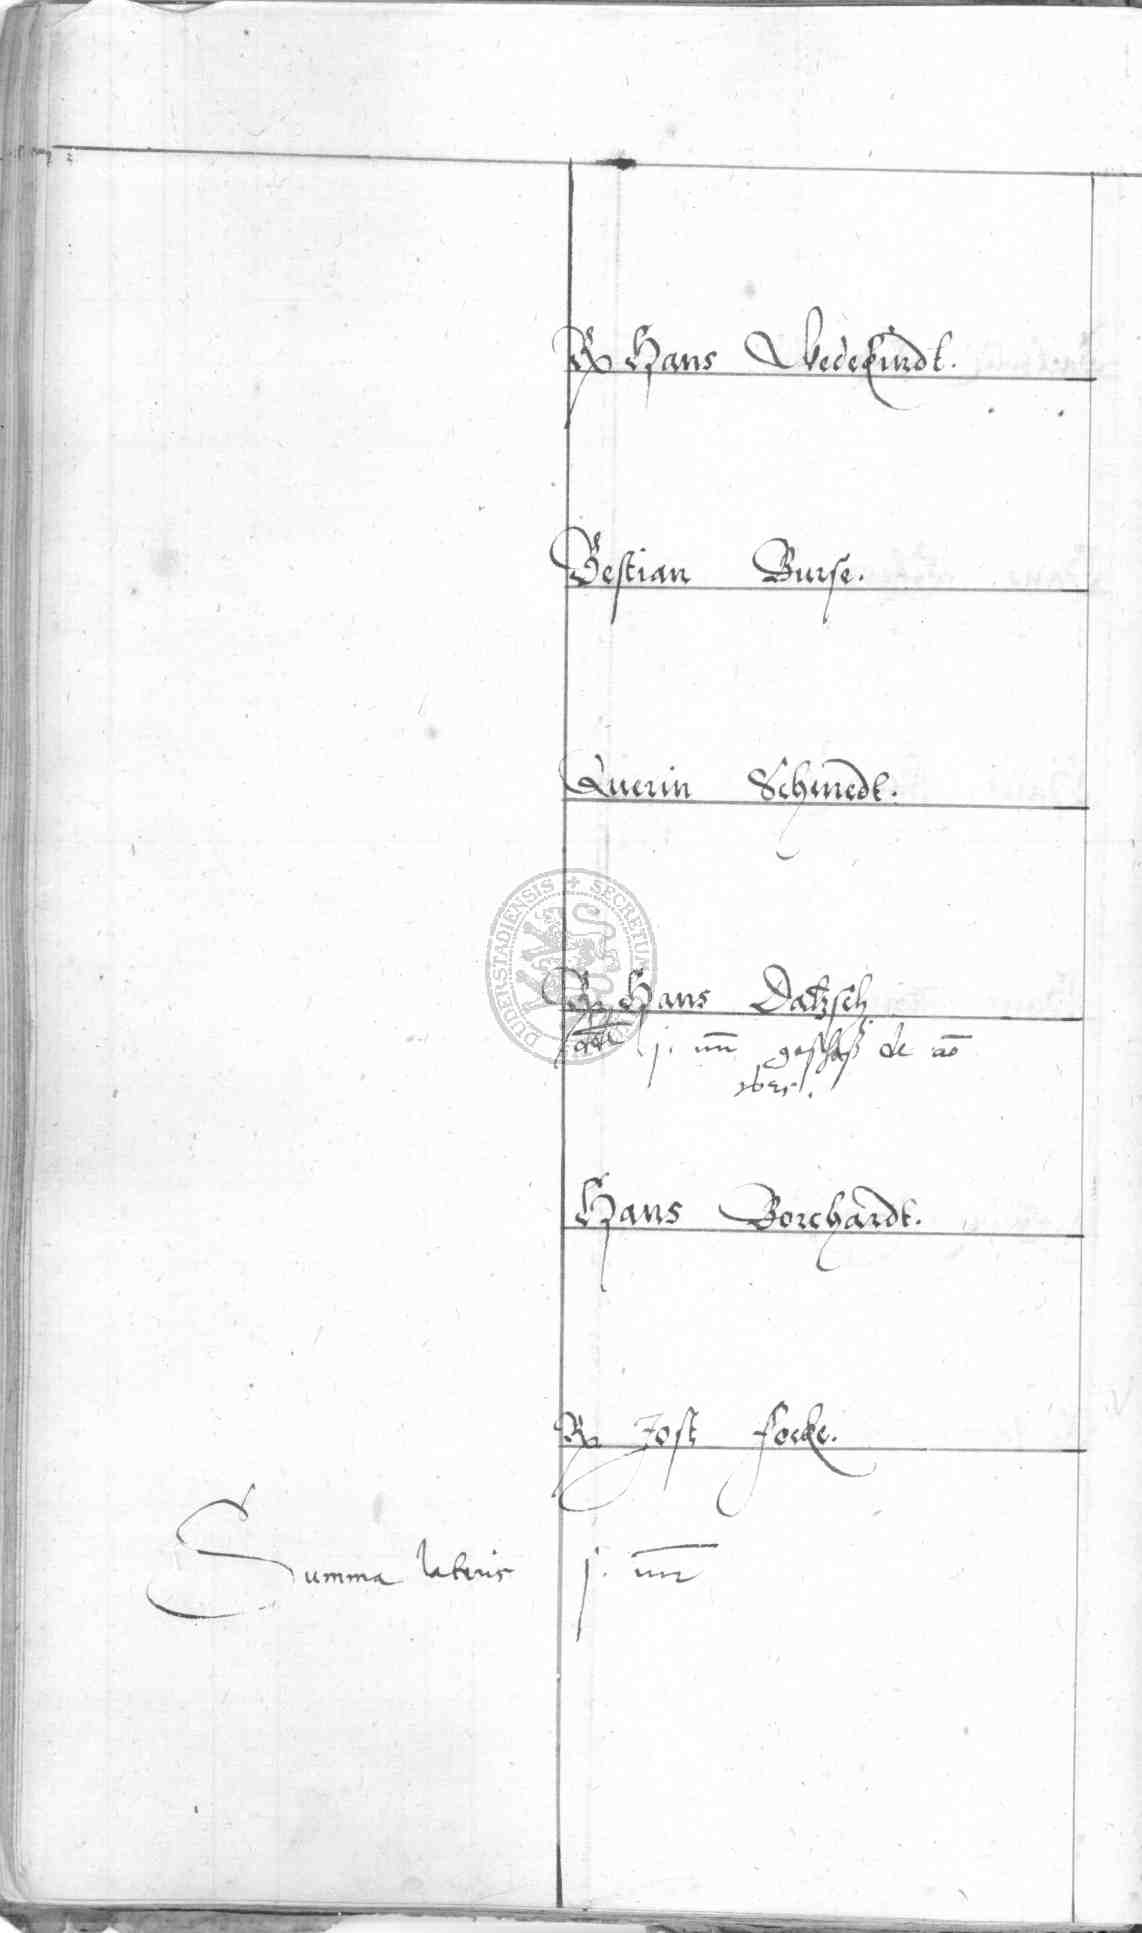 Hans Wedekindt.
Bestian Burse.
Querin Schmedt.
Hans Datzsch
dt j. m̅ geschoß de ao
Hans Borchardt.
Jost Focke.
Summa lateris j. m̅
DUDERSTADIENSIS + SECRETUM